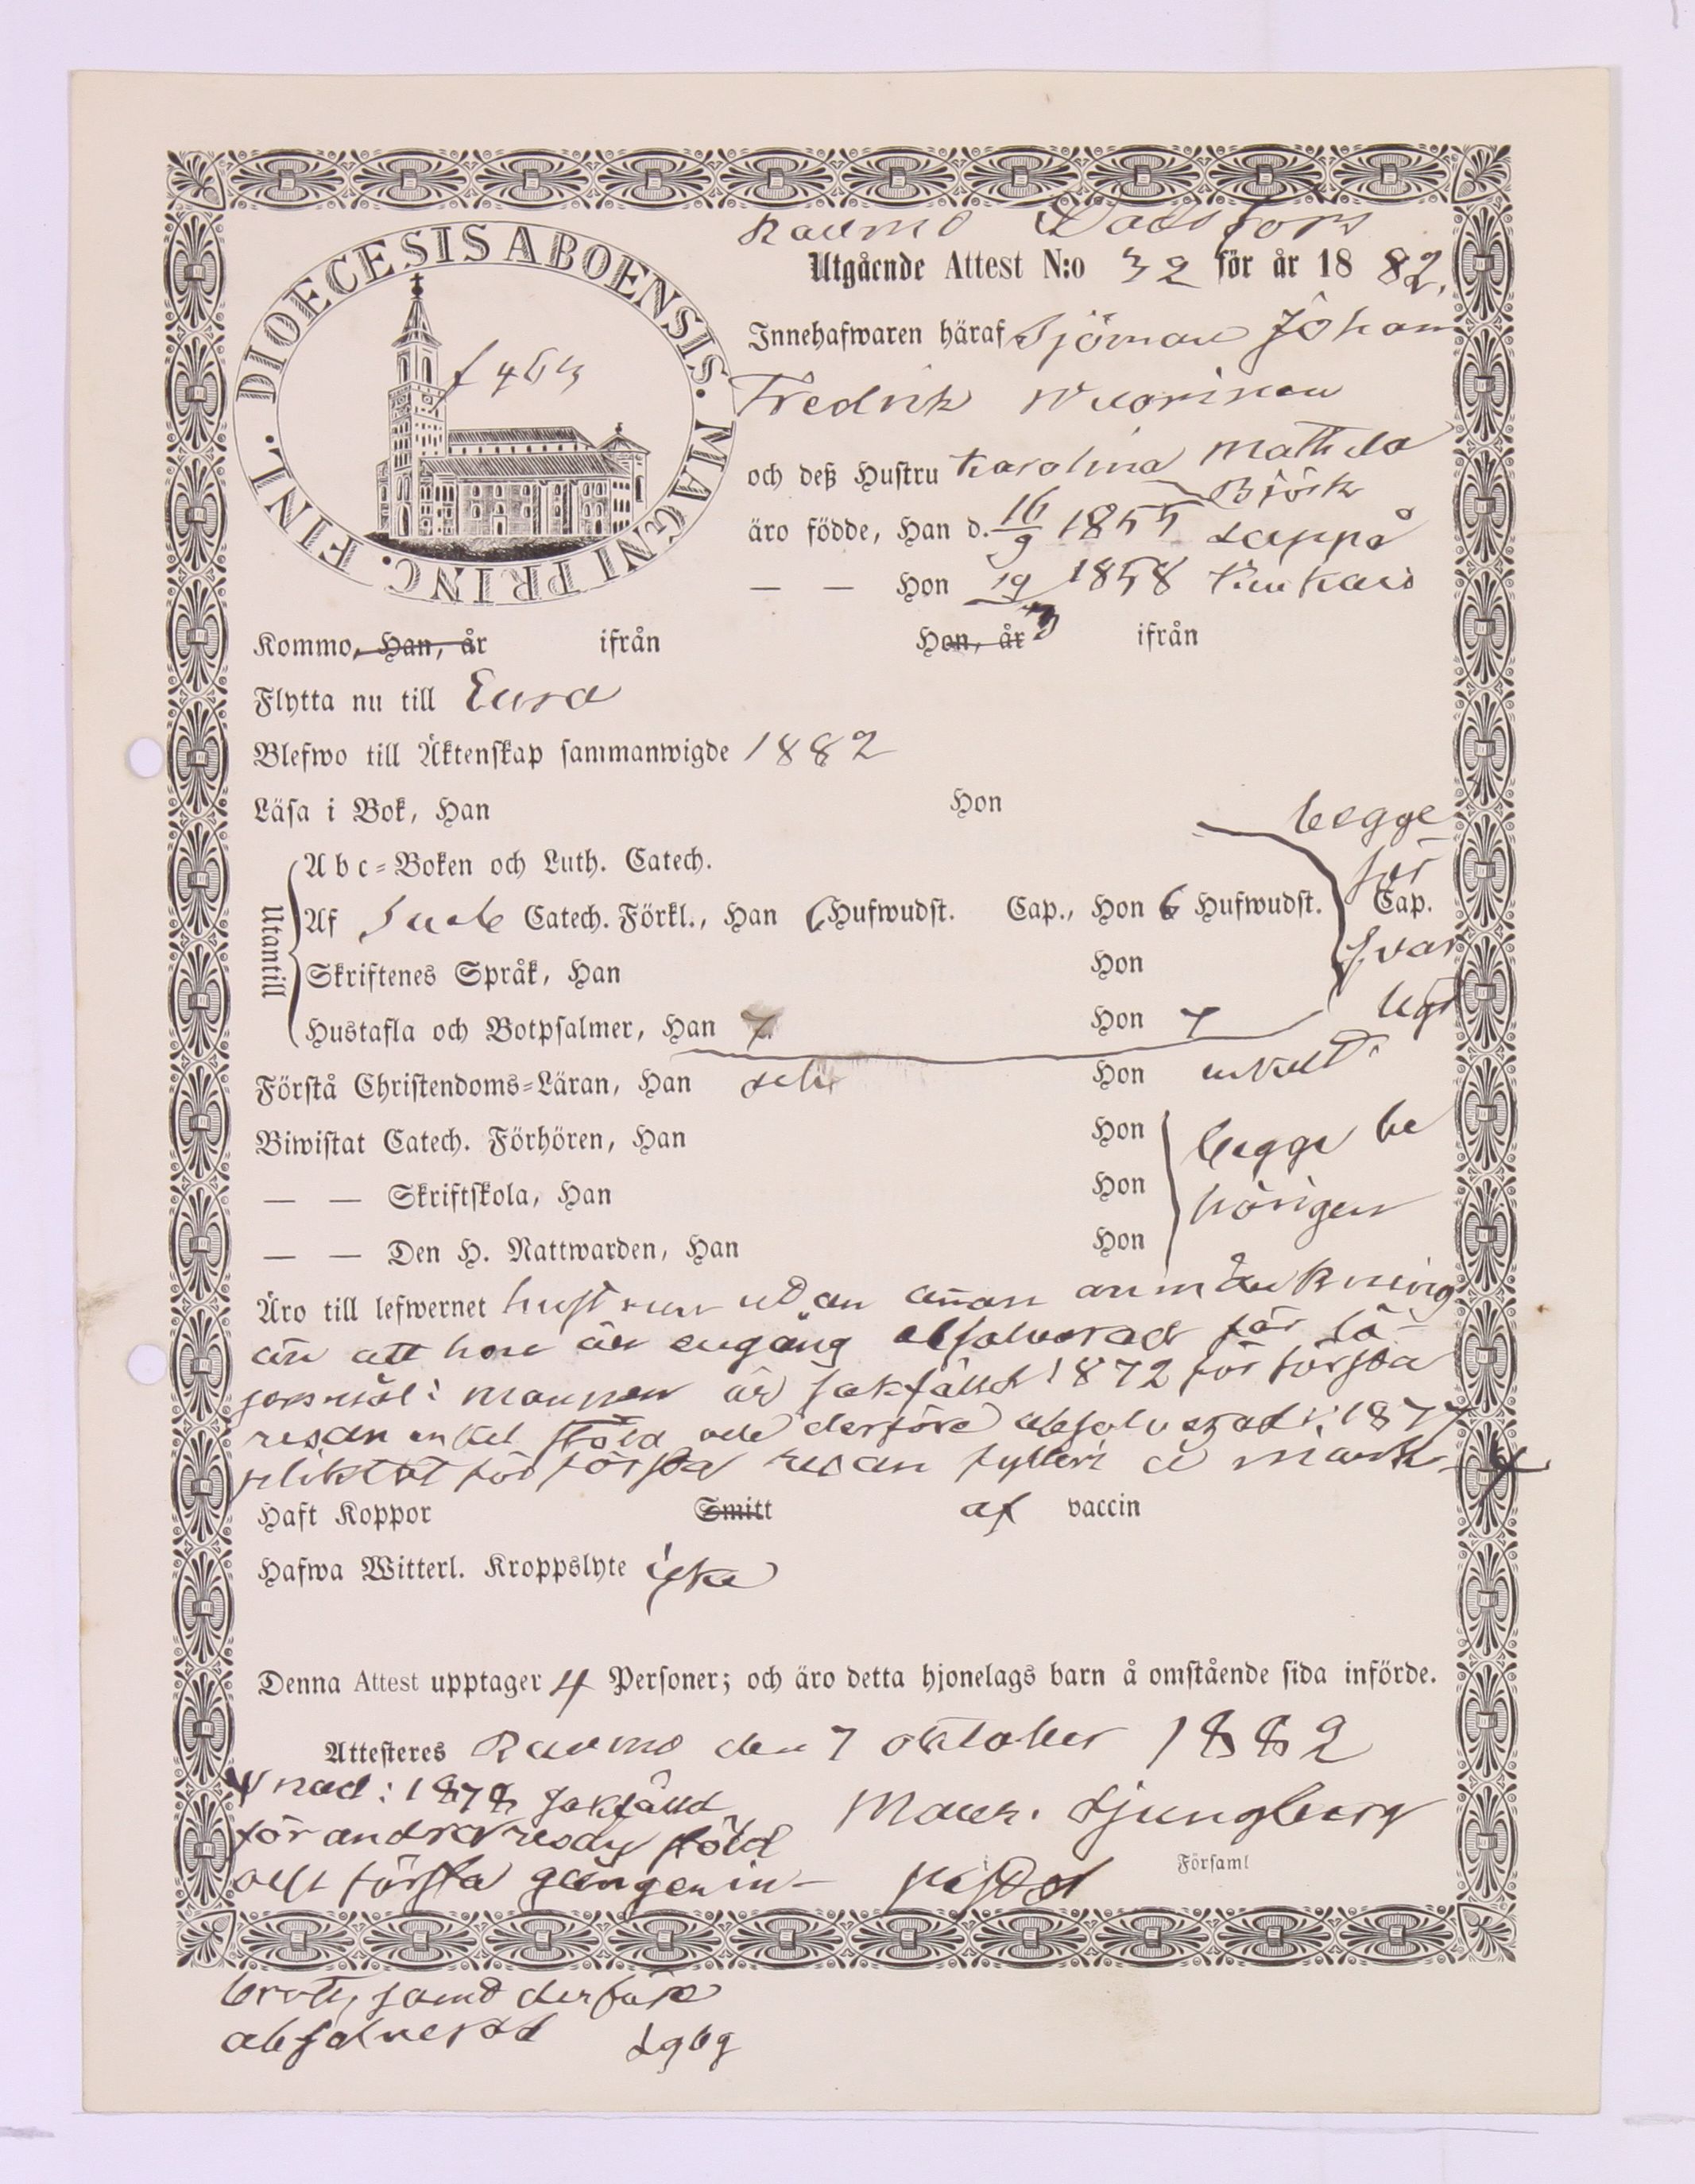 DIOECESIS ABOENSIS. MAGNI PRINC. FINL.
Raumo Stadsförs
Utgående Attest N:o 32 för år 1882.
Innehafwaren häraf Sjöman Johan
Fredrik Wuorinen
och deß Hustru Karolina Mathilda
Björk
äro födde, Han d. 16/9 1855 Lappå
— — Hon 19/3 1858 Kiukais
Kommo, Han, år ifrån Hon, år ifrån
Flytta nu till Eura
Blefwo till Äktenskap sammanwigde 1882
Läsa i Bok, Han Hon begge
Abc-Boken och Luth. Catech. för
Utantill
Af Catech. Förkl., Han 6 Hufwudst. Cap., Hon 6 Hufwudst. Cap.
Skriftenes Språk, Han Hon svar
Hustafla och Botpsalmer, Han 7. Hon 7 ligt
Förstå Christendoms-Läran, Han och Hon enkelt
Biwistat Catech. Förhören, Han Hon begge be
— — Skriftskola, Han Hon hörigen
— — Den H. Nattwarden, Han Hon
Äro till lefwernet hustrun utan annan anmärkning
än att hon är engång absolverad för lä-
gersmål: mannen är sakfälld 1872 för första
resan enkel stöld och derföre absolverad: 1877
pliktat för första resan fylleri å mark-
Haft Koppor Smitt af vaccin
Hafwa Witterl. Kroppslyte icke
Denna Attest upptager 4 Personer; och äro detta hjonelags barn å omstående sida införde.
Attesteres Raumo den 7 oktober 1882
nad: 1878 sakfälld
för andra resan stöld
och första gången in-
Ljungberg
i Församl
brott, samt derföre
absolverad Lgbg